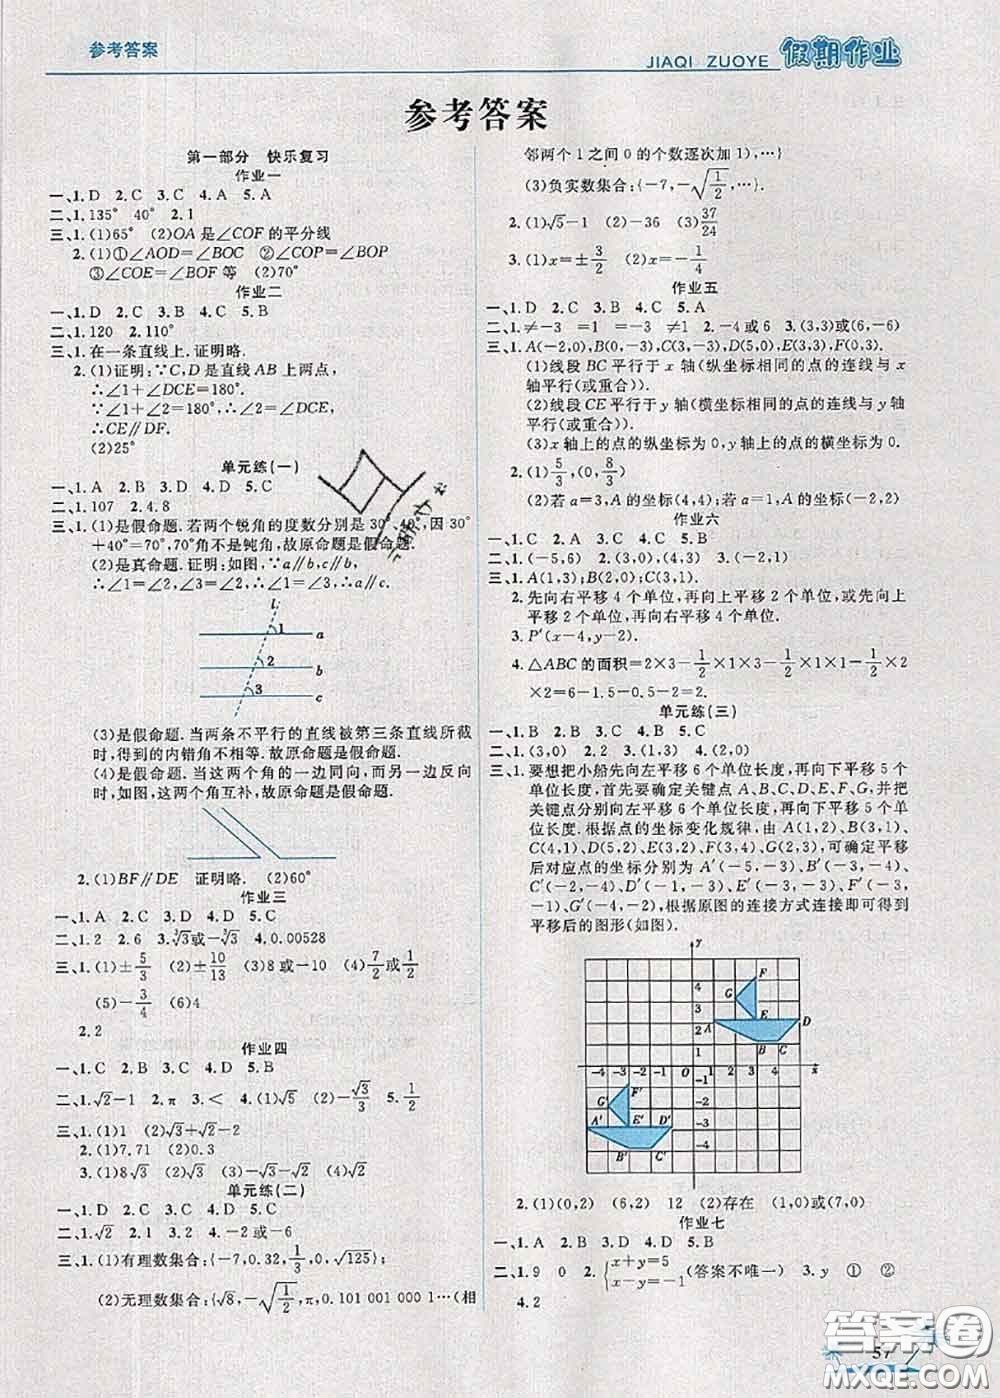 参考答案
JIAQI ZUOYE 假期作业
参考答案
第一部分 快乐复习
作业一
一、1.D 2.C 3.C 4.A 5.A
二、1.135° 40° 2.1
三、1.(1)65° (2)OA是∠COF的平分线
2.(1)①∠AOD=∠BOC ②∠COP=∠BOP
③∠COE=∠BOF等 (2)70°
作业二
一、1.D 2.C 3.C 4.C 5.B
二、1.120 2.110°
三、1.在一条直线上.证明略.
2.(1)证明:∵C,D是直线AB上两点,
∴∠1+∠DCE=180°.
∵∠1+∠2=180°,∴∠2=∠DCE,
∴CE∥DF.
(2)25°
单元练(一)
一、1.A 2.B 3.D 4.D 5.C
二、1.107 2.4.8
三、1.(1)是假命题.若两个锐角的度数分别是30°,40°,因30°
+40°=70°,70°角不是钝角,故原命题是假命题.
(2)是真命题.证明:如图,∵a∥b,c∥b,
∴∠1=∠2,∠2=∠3,∴∠1=∠3,∴a∥c.
l
1 a
2 b
3 c
(3)是假命题.当两条不平行的直线被第三条直线所截
时,得到的内错角不相等.故原命题是假命题.
(4)是假命题.当这两个角的一边同向,而另一边反向
时,如图,这两个角互补,故原命题是假命题.
2.(1)BF∥DE 证明略. (2)60°
作业三
一、1.A 2.C 3.D 4.D 5.C
二、1.2 2.6 3.∛3或-∛3 4.0.00528
三、1.(1)±5/3 (2)±10/13 (3)8或-10 (4)7/2或1/2
(5)-3/4 (6)4
2.2
作业四
一、1.C 2.B 3.C 4.D 5.B
二、1.√2-1 2.π 3.< 4.(1)√5 (2)-√3/3 5.1/2
三、1.(1)1 (2)√3+√2-2
2.(1)7.71 (2)0.3
3.(1)8√3 (2)√3 (3)-√3-√2 (4)√2
单元练(二)
一、1.D 2.C 3.C 4.D 5.C
二、1.√2 2.1 3.2 4.-2或-6
三、1.(1)有理数集合:{-7,0.32,1/3,0,√125};
(2)无理数集合:{√8,-√(1/2),π,0.101 001 000 1…(相
邻两个1之间0的个数逐次加1),…}
(3)负实数集合:{-7,-√(1/2),…}.
2.(1)√5-1 (2)-36 (3)37/24
3.(1)x=±3/2 (2)x=-1/4
作业五
一、1.D 2.C 3.B 4.C 5.A
二、1.≠-3 =1 =-3 ≠1 2.-4或6 3.(3,3)或(6,-6)
三、1.A(-2,0),B(0,-3),C(3,-3),D(5,0),E(3,3),F(0,3).
(1)线段BC平行于x轴(纵坐标相同的点的连线与x
轴平行(或重合)).
(2)线段CE平行于y轴(横坐标相同的点的连线与y轴
平行(或重合)).
(3)x轴上的点的纵坐标为0,y轴上的点的横坐标为0.
2.(1)5/3,(0,8/3)
(2)若a=3,A的坐标(4,4);若a=1,A的坐标(-2,2)
作业六
一、1.C 2.A 3.C 4.D 5.D
二、1.(-5,6) 2.(3,3),(4,3) 3.(-2,1)
三、1.A(3,5);B(2,0);C(3,1).
2.先向右平移4个单位,再向上平移2个单位,或先向上
平移2个单位,再向右平移4个单位.
3.P′(x-4,y-2).
4.△ABC的面积=2×3-1/2×1×3-1/2×1×1-1/2×2
×2=6-1.5-0.5-2=2.
单元练(三)
一、1.B 2.B 3.C 4.B 5.C
二、1.(3,0) 2.2 3.(1,3) 4.(2,0)
三、1.要想把小船先向左平移6个单位长度,再向下平移5个
单位长度,首先要确定关键点A、B、C、D、E、F、G,并把
关键点分别向左平移6个单位长度,再向下平移5个单
位长度.根据点的坐标变化规律,由A(1,2)、B(3,1)、
C(4,1)、D(5,2)、E(3,2)、F(3,4)、G(2,3),可确定平移
后对应点的坐标分别为A′(-5,-3)、B′(-3,-4)、
C′(-2,-4)、D′(-1,-3)、E′(-3,-3)、F′(-3,
-1)、G′(-4,-2),根据原图的连接方式连接即可得到
平移后的图形(如图).
y
4
3
2
1
F
G
E
A
D
B C
-4 -3 -2 -1 O 1 2 3 4 x
-1
-2
-3
-4
F′
G′
A′ E′ D′
B′ C′
2.(1)(0,2) (6,2) 12 (2)存在 (1,0)或(7,0)
作业七
一、1.A 2.B 3.D 4.D 5.B
二、1.9 0 2.{x+y=5 x-y=-1(答案不唯一) 3.y ① ②
4.2
57
答案圈
MXQE.COM